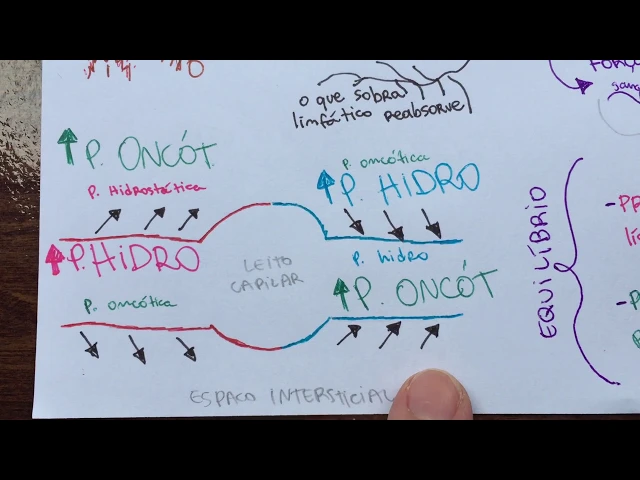 o que sobra
linfático reabsorve
↑ P. ONCÓT.
P. Hidrostática
↑ P. HIDRO
P. oncótica
P. oncótica
↑ P. HIDRO
P. hidro
↑ P. ONCÓT
LEITO
CAPILAR
ESPAÇO INTERSTICIAL
EQUILÍBRIO